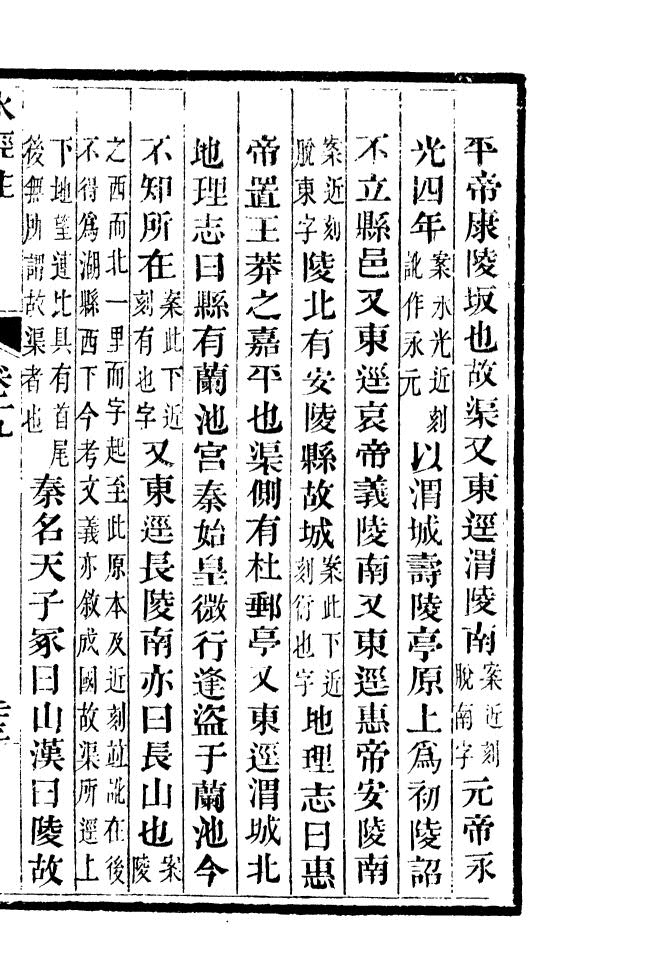 平帝康陵坂也故渠又東逕渭陵南案近刻脫南字元帝永
光四年案永光近刻訛作永元以渭城壽陵亭原上爲初陵詔
不立縣邑又東逕哀帝義陵南又東逕惠帝安陵南
案近刻脫東字陵北有安陵縣故城案此下近刻衍也字地理志曰惠
帝置王莽之嘉平也渠側有杜郵亭又東逕渭城北
地理志曰縣有蘭池宮秦始皇微行逢盜于蘭池今
不知所在案此下近刻有也字又東逕長陵南亦曰長山也案陵
之西而北一里而字起至此原本及近刻竝訛在後
不得爲湖縣西下今考文義亦敘成國故渠所逕上
下地望連比具有首尾後無所謂故渠者也秦名天子冢曰山漢曰陵故
水經注 卷十九